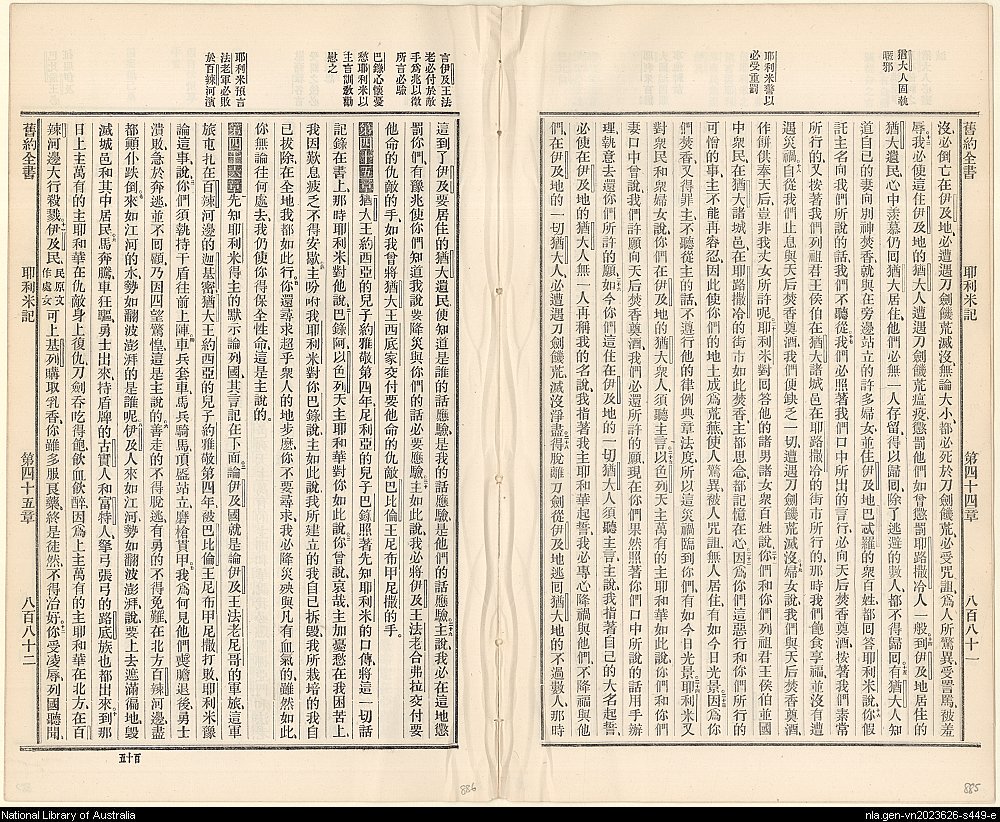 猶大人固執
耶利米警以
必受重罰
舊約全書 耶利米記 第四十四章 八百八十一
沒必倒亡在伊及地必遭遇刀劍饑荒滅沒無論大小都必死於刀劍饑荒必受咒詛爲人所驚異受詈罵被羞
辱我必使這住在伊及地的猶大人遭遇刀劍饑荒瘟疫懲罰他們如曾懲罰耶路撒冷人一般到伊及地居住的
猶大遺民心中羨慕仍回猶大居住他們必無一人存留得以歸回除了逃避的數人都不得歸回有猶大人知
道自己的妻向別神焚香就與在旁邊站立的許多婦女並住伊及地巴忒羅的衆百姓都回答耶利米說你假
託主名向我們所說的話我們不聽從我們必照著我們口中所出的言行必向天后焚香奠酒按著我們素常
所行的又按著我們列祖君王侯伯在猶大諸城邑在耶路撒冷的街市所行的那時我們飽食享福並沒有遭
遇災禍自從我們止息與天后焚香奠酒我們便缺乏一切遭遇刀劍饑荒滅沒婦女說我們與天后焚香奠酒
作餅供奉天后豈非我丈夫所許呢耶利米對回答他的諸男諸女衆百姓說你們和你們列祖君王侯伯並國
中衆民在猶大諸城邑在耶路撒冷的街市如此焚香主都思念都記憶在心因爲你們這惡行和你們所行的
可憎的事主不能再容忍因此使你們的地土成爲荒蕪使人驚異被人咒詛無人居住有如今日光景因爲你
們焚香又得罪主不聽從主的話不遵行他的律例典章法度所以這災禍臨到你們有如今日光景耶利米又
對衆民和衆婦女說你們在伊及地的猶大衆人須聽主言以色列天主萬有的主耶和華如此說你們和你們
妻口中曾說我們許願向天后焚香奠酒我們必還所許的願現在你們果然照著你們口中所說的話用手辦
理執意去還你們所許的願如今你們這住在伊及地的一切猶大人須聽主言主說我指著自己的大名起誓
必使在伊及地的猶大人無一人再稱我的名說我指著我主耶和華起誓我必專心降禍與他們不降福與他
們在伊及地的一切猶大人必遭遇刀劍饑荒滅沒淨盡得脫離刀劍從伊及地逃回猶大地的不過數人那時
885
言伊及王法
老必付於敵
手爲兆以徵
所言必驗
巴錄心懷憂
愁耶利米以
主言訓敎勸
慰之
耶利米預言
法老軍必敗
於百辣河濱
這到了伊及要居住的猶大遺民便知道是誰的話應驗是我的話應驗是他們的話應驗主說我必在這地懲
罰你們有豫兆使你們知道我說要降災與你們的話必要應驗主如此說我必將伊及王法老合弗拉交付要
他命的仇敵的手如我曾將猶大王西底家交付要他命的仇敵巴比倫王尼布甲尼撒的手
第四十五章猶大王約西亞的兒子約雅敬第四年尼利亞的兒子巴錄照著先知耶利米的口傳將這一切話
記錄在書上那時耶利米對他說巴錄阿以色列天主耶和華對你如此說你曾說哀哉主加憂愁在我困苦上
我因歎息疲乏不得安歇主吩咐我耶利米對你巴錄說主如此說我所建立的我自己拆毀我所栽培的我自
己拔除在全地我都如此行你還尋求超乎衆人的地步麽你不要尋求我必降災殃與凡有血氣的雖然如此
你無論往何處去我仍使你得保全性命這是主說的
第四十六章先知耶利米得主的默示論列國其言記在下面論伊及國就是論伊及王法老尼哥的軍旅這軍
旅屯扎在百辣河邊的迦基密猶大王約西亞的兒子約雅敬第四年被巴比倫王尼布甲尼撒打敗耶利米豫
論這事說你們須執持干盾往前上陣車兵套車馬兵騎馬頂盔站立磨槍貫甲我爲何見他們喪膽退後勇士
潰敗急於奔逃並不回顧乃因四望驚惶這是主說的善走的不得脫逃有勇的不得免難在北方百辣河邊盡
都顚仆跌倒來如江河的水勢如翻波澎湃的是誰呢伊及人來如江河勢如翻波澎湃說要上去遮滿徧地毁
滅城邑和其中居民馬奔騰車狂驅勇士出來持盾牌的古實人和富特人拏弓張弓的路底族也都出來到那
日上主萬有的主耶和華在仇敵身上復仇刀劍吞吃得飽飮血飮醉因爲上主萬有的主耶和華在北方在百
辣河邊大行殺戮伊及民民原文作處女可上基列購取乳香你雖多服良藥終是徒然不得治好你受凌辱列國聽聞
舊約全書 耶利米記 第四十五章 八百八十二
百十五
886
National Library of Australia
nla.gen-vn2023626-s449-e